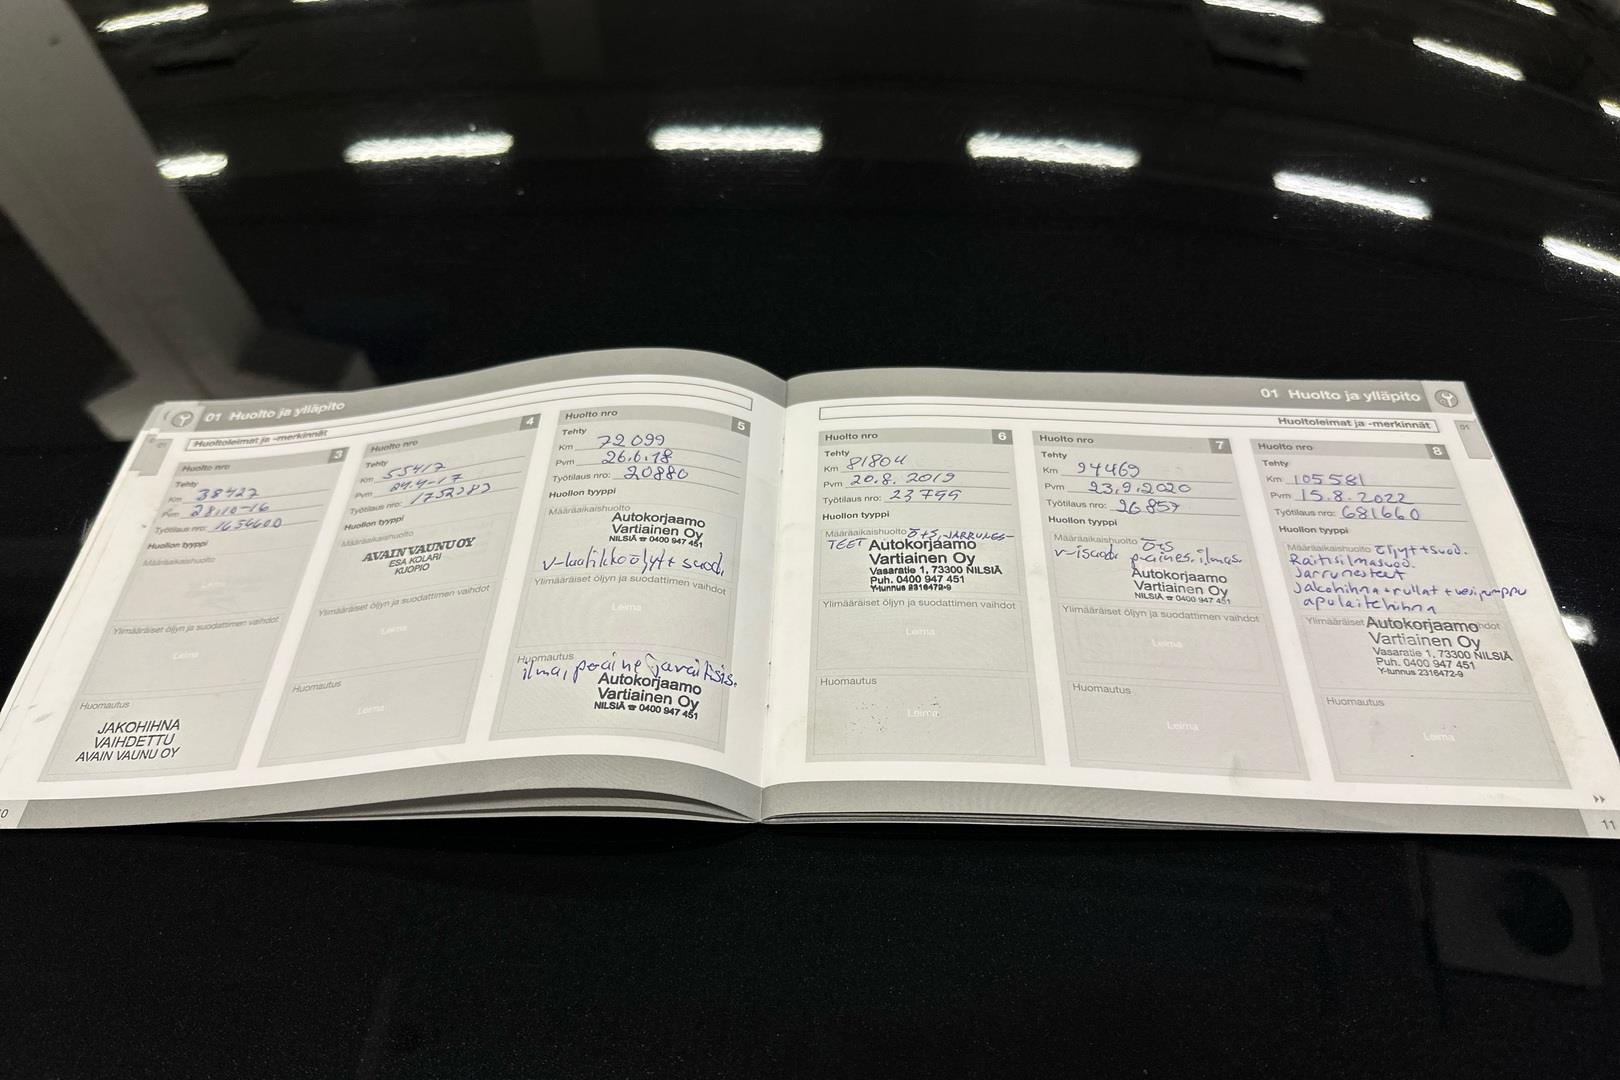 01 Huolto ja ylläpito
Huoltoleimat ja -merkinnät
01
Huolto nro
3
Tehty
Km 38427
Pvm 28.10-16
Työtilaus nro: 1656600
Huollon tyyppi
Määräaikaishuolto
Ylimääräiset öljyn ja suodattimen vaihdot
Leima
Huomautus
JAKOHIHNA
VAIHDETTU
AVAIN VAUNU OY
Huolto nro
4
Tehty
Km 55417
Pvm 24.4-17
Työtilaus nro:
Huollon tyyppi
Määräaikaishuolto
AVAIN VAUNU OY
ESA KOLARI
KUOPIO
Ylimääräiset öljyn ja suodattimen vaihdot
Leima
Huomautus
Leima
Huolto nro
5
Tehty
Km 72099
Pvm 26.6.18
Työtilaus nro: 20880
Huollon tyyppi
Määräaikaishuolto
Autokorjaamo
Vartiainen Oy
NILSIÄ ☎ 0400 947 451
v-luutilkkoöljyt + suod.
Ylimääräiset öljyn ja suodattimen vaihdot
Leima
Huomautus
ilma, paine ja raitisis.
Autokorjaamo
Vartiainen Oy
NILSIÄ ☎ 0400 947 451
01 Huolto ja ylläpito
Huoltoleimat ja -merkinnät
01
Huolto nro
6
Tehty
Km 81804
Pvm 20.8.2019
Työtilaus nro: 23799
Huollon tyyppi
Määräaikaishuolto Ö+S, JARRUNES-
TEET
Autokorjaamo
Vartiainen Oy
Vasaratie 1, 73300 NILSIÄ
Puh. 0400 947 451
Y-tunnus 2316472-9
Ylimääräiset öljyn ja suodattimen vaihdot
Leima
Huomautus
Leima
Huolto nro
7
Tehty
Km 94469
Pvm 23.9.2020
Työtilaus nro: 26857
Huollon tyyppi
Määräaikaishuolto Ö+S
v-isuod. paines. ilmas.
Autokorjaamo
Vartiainen Oy
NILSIÄ ☎ 0400 947 451
Ylimääräiset öljyn ja suodattimen vaihdot
Leima
Huomautus
Leima
Huolto nro
8
Tehty
Km 105581
Pvm 15.8.2022
Työtilaus nro: 681660
Huollon tyyppi
Määräaikaishuolto Öljyt + suod.
Raitisilmasuod.
Jarrunesteet
Jakohihna + rullat + vesipumppu
apulaitehihna
Ylimääräiset
Autokorjaamo
hdot
Vartiainen Oy
Vasaratie 1, 73300 NILSIÄ
Puh. 0400 947 451
Y-tunnus 2316472-9
Huomautus
Leima
11